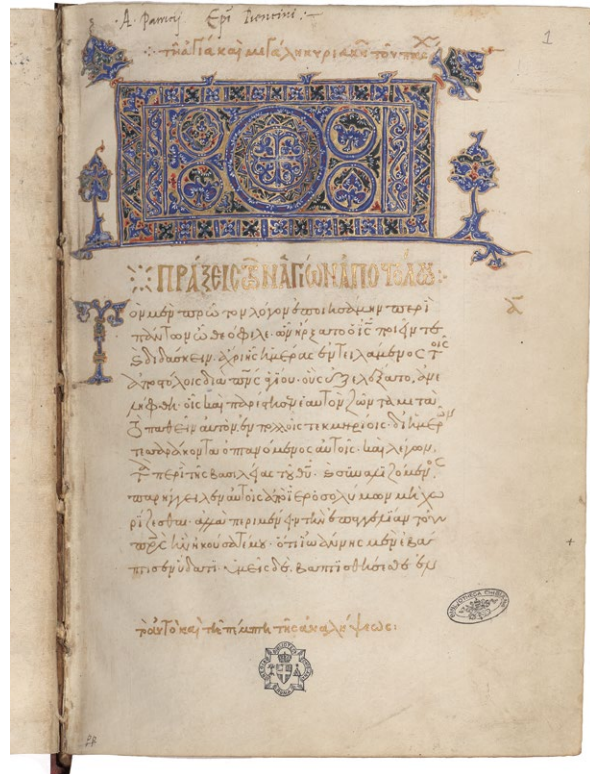 A. Patricij Epi
1
τῆ ἁγία καὶ μεγάλη κυριακῆ τοῦ πάσχ
ΠΡΑΞΕΙΣ ΤΩΝ ἉΓΙΩΝ ἈΠΟΣΤΟΛΩΝ
α
Τὸν μὲν πρῶτον λόγον ἐποιησάμην περὶ
πάντων ὦ θεόφιλε· ὧν ἤρξατο ὁ ις ποιεῖν τε
καὶ διδάσκειν· ἄχρι ἧς ἡμέρας ἐντειλάμενος τοῖς
ἀποστόλοις διὰ πνς ἁγίου· οὓς ἐξελέξατο, ἀνε
λήφθη· οἷς καὶ παρέστησεν ἑαυτὸν ζῶντα μετὰ
τὸ παθεῖν αὐτὸν, ἐν πολλοῖς τεκμηρίοις· δι' ἡμερῶν
τεσσαράκοντα ὀπτανόμενος αὐτοῖς· καὶ λέγων,
τὰ περὶ τῆς βασιλείας τοῦ θυ· καὶ συναλιζόμενος
παρήγγειλεν αὐτοῖς ἀπὸ ἱεροσολύμων μὴ χω
ρίζεσθαι· ἀλλὰ περιμένειν τὴν ἐπαγγελίαν τοῦ
πρς ἣν ἠκούσατέ μου· ὅτι ἰωάννης μὲν ἐβά
πτισεν ὕδατι· ὑμεῖς δὲ βαπτισθήσεσθε ἐν
τὸ αὐτὸ καὶ τῆ πέμπτη τῆς ἀναλήψεως: